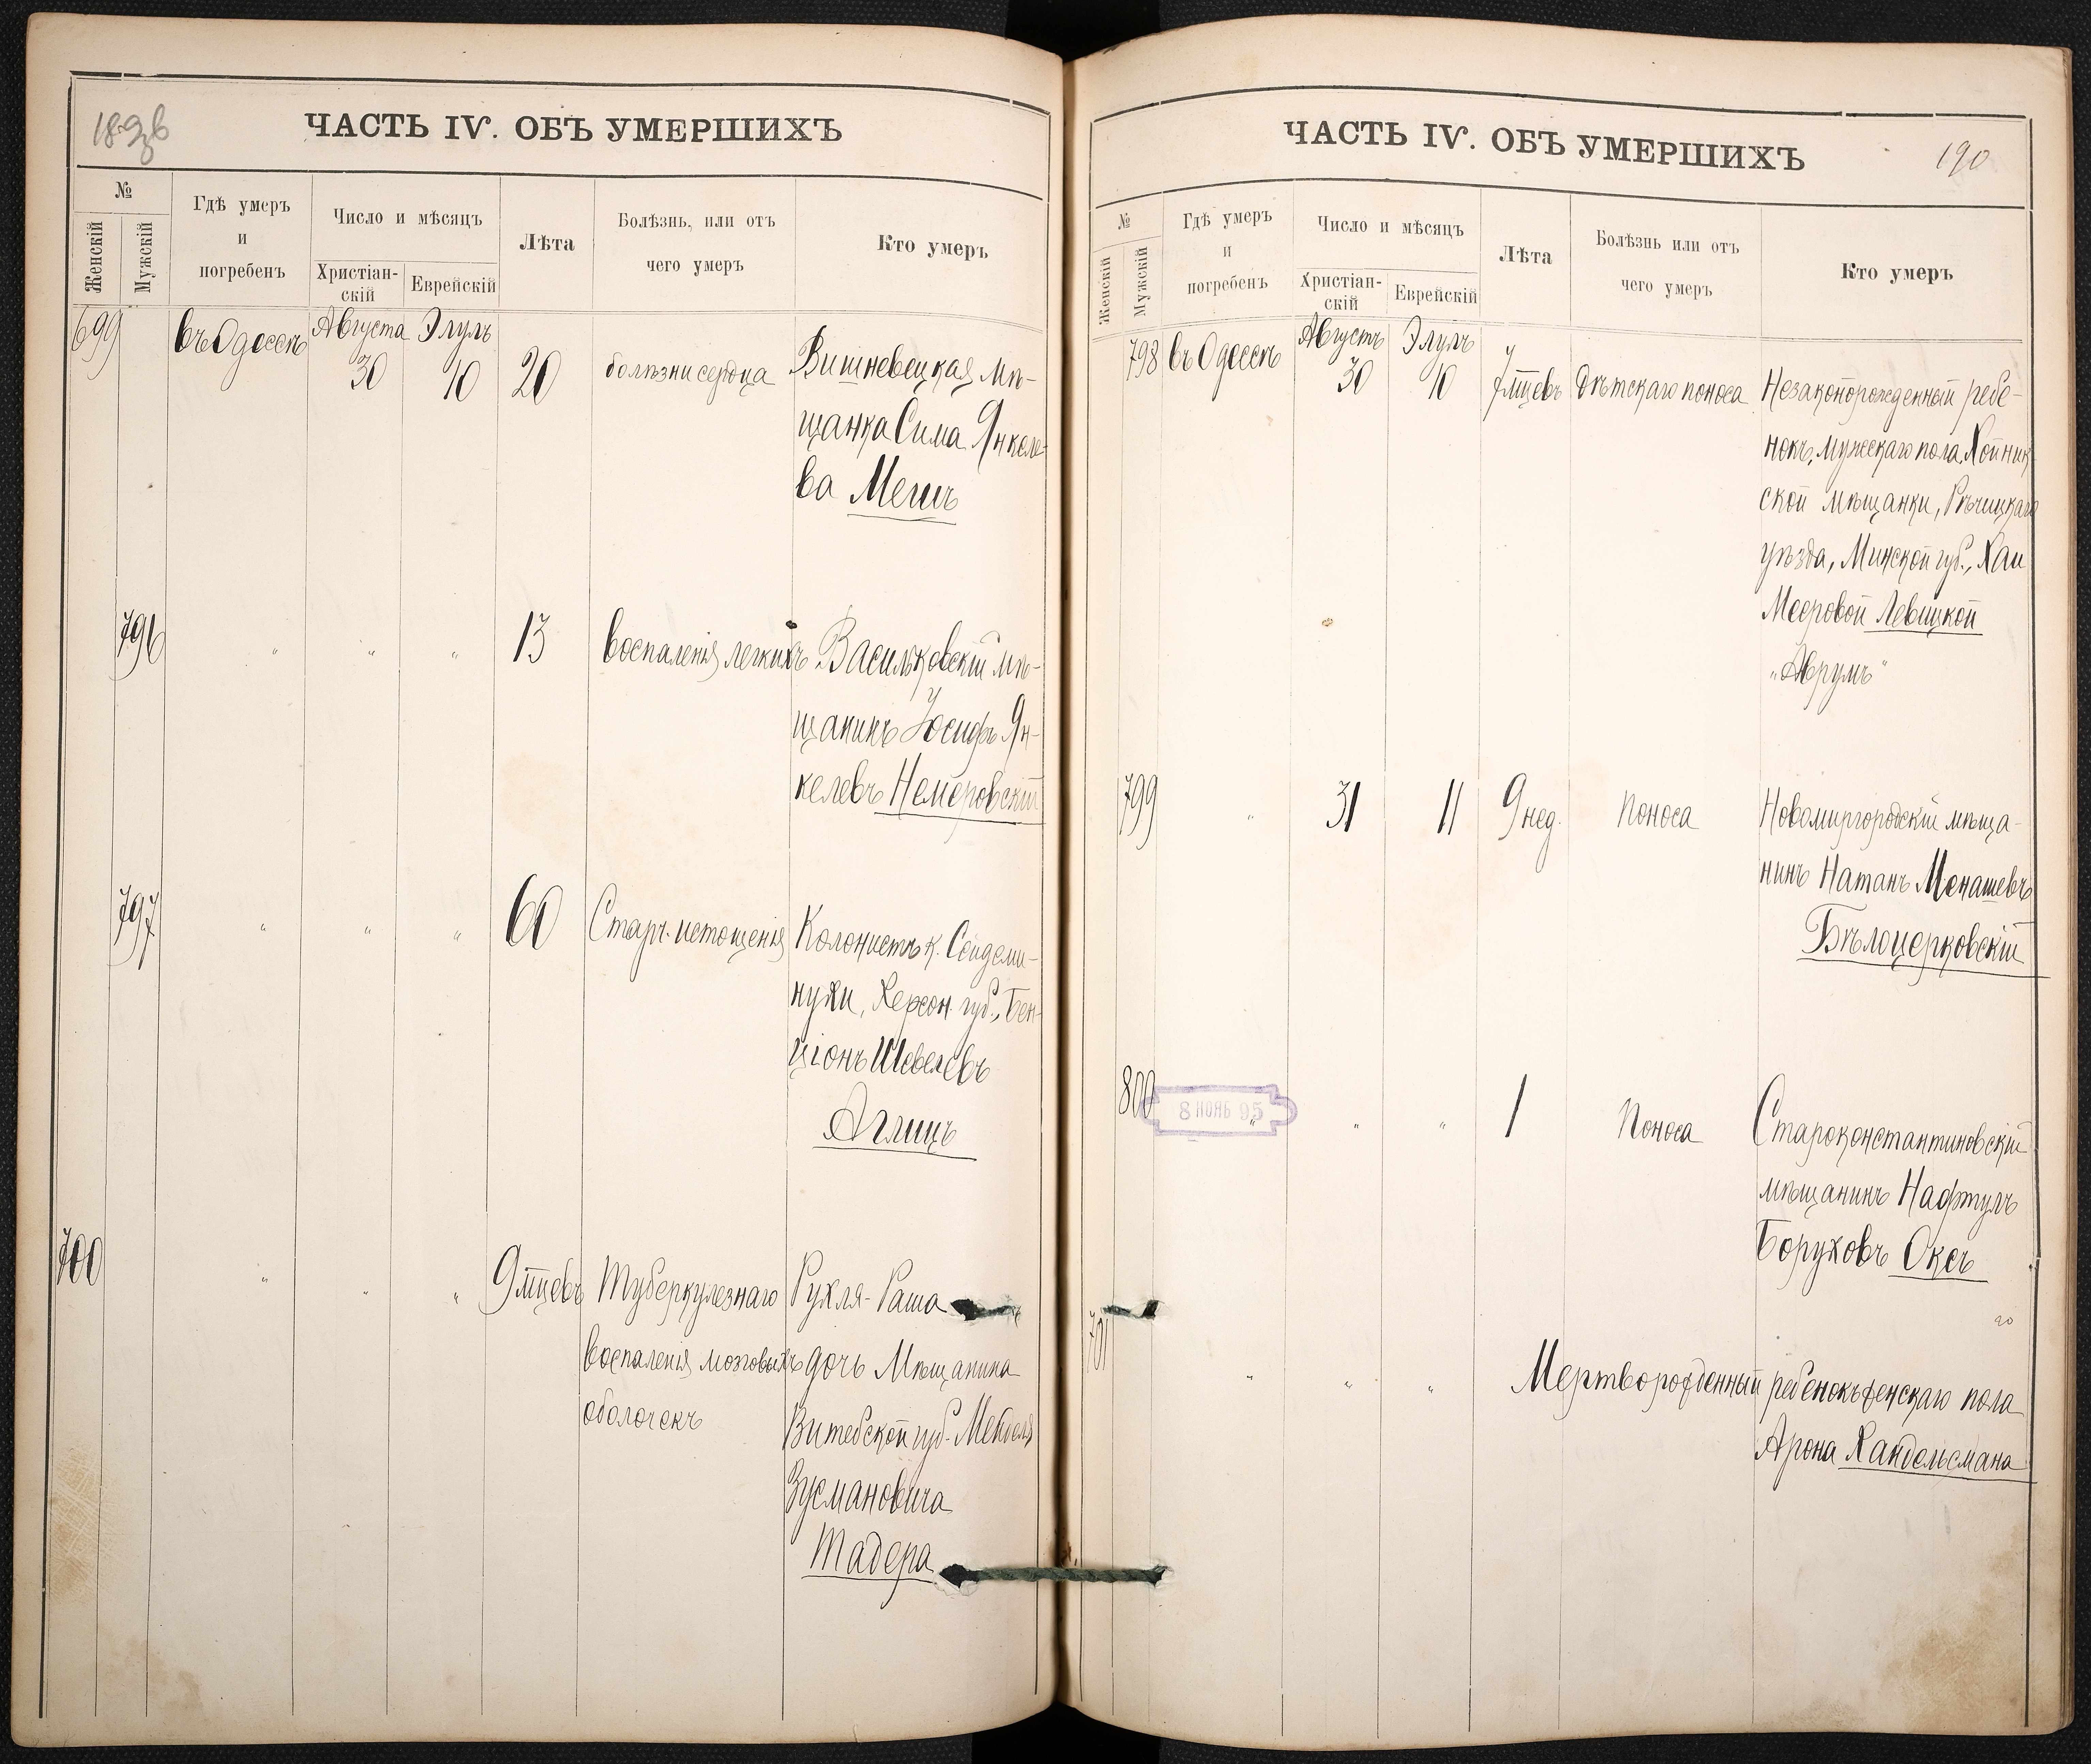 ЧАСТЬ IV. ОБЪ УМЕРШИХЪ
№
Женскій
Мужскій
Гдѣ умеръ
и
погребенъ
Число и мѣсяцъ
Христіан-
скій
Еврейскій
Лѣта
Болѣзнь, или отъ
чего умеръ
Кто умеръ
699 въ Одессѣ Августа Элулъ
30 10 20 болѣзни сердца Вишневецкая мѣ-
щанка Сима Янкеле-
ва Мешъ
796 " " " 13 воспаленія легкихъ Васильковскій мѣ-
щанинъ Іосифъ Ян-
келевъ Немеровскій
797 " " " 60 Стар. истощенія Колонистъ к. Сейдеми-
нухи, Херсон. губ., Бен-
ціонъ Шевелевъ
Аглицъ
700 " " " 9 мцевъ Туберкулезнаго Рухля-Раша
воспаленія мозговыхъ дочь Мѣщанина
оболочекъ Витебской губ. Менделя
Зусмановича
Тадера
ЧАСТЬ IV. ОБЪ УМЕРШИХЪ
190
№
Женскій
Мужскій
Гдѣ умеръ
и
погребенъ
Число и мѣсяцъ
Христіан-
скій
Еврейскій
Лѣта
Болѣзнь или отъ
чего умеръ
Кто умеръ
798 въ Одессѣ Августъ Элулъ
30 10 7 мцевъ Дѣтскаго поноса Незаконорожденный ребе-
нокъ, мужескаго пола Хойник-
ской мѣщанки, Рѣчицкаго
уѣзда, Минской губ., Хаи
Мееровой Левицкой
"Аврумъ"
799 " 31 11 9 нед. Поноса Новомиргородскій мѣща-
нинъ Натанъ Монашевъ
Бѣлоцерковскій
800 " " " 1 Поноса Староконстантиновскій
8 НОЯБ 95
мѣщанинъ Нафтулъ
Боруховъ Оксъ
701 " " " Мертворожденный ребенокъ женскаго пола
Арона Хандельсмана